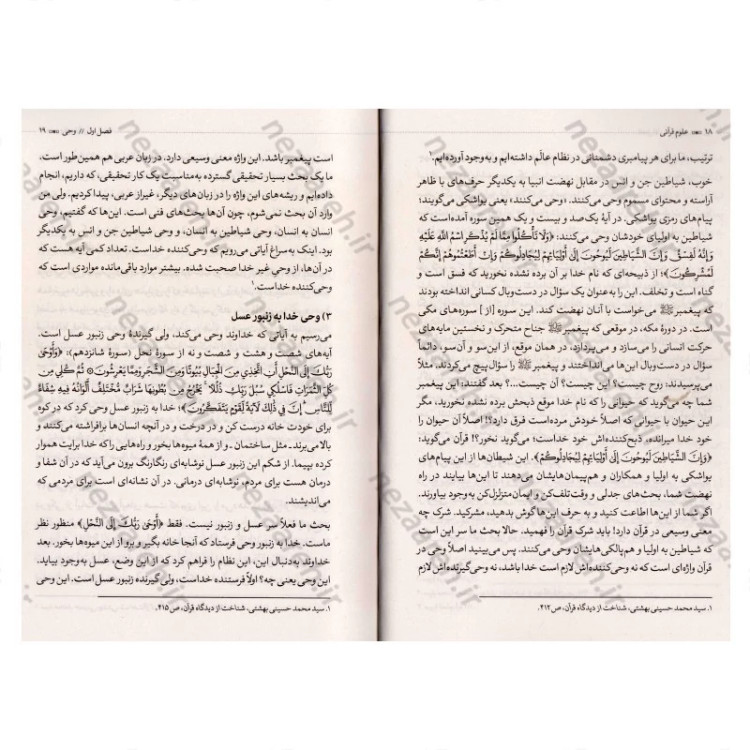 ۱۸ علوم قرآنی
ترتیب، ما برای هر پیامبری دشمنانی در نظام عالَم داشته‌ایم و به‌وجود آورده‌ایم.۱
خوب، شیاطین جن و انس در مقابل نهضت انبیا به یکدیگر حرف‌های با ظاهر
آراسته و محتوای مسموم وحی می‌کنند. «وحی می‌کنند» یعنی یواشکی می‌گویند؛
پیام‌های رمزی یواشکی. در آیهٔ یک‌صد و بیست و یک همین سوره آمده است که
شیاطین به اولیای خودشان وحی می‌کنند: ﴿وَلَا تَأْكُلُوا مِمَّا لَمْ يُذْكَرِ اسْمُ اللَّهِ عَلَيْهِ
وَإِنَّهُ لَفِسْقٌ وَإِنَّ الشَّيَاطِينَ لَيُوحُونَ إِلَى أَوْلِيَائِهِمْ لِيُجَادِلُوكُمْ وَإِنْ أَطَعْتُمُوهُمْ إِنَّكُمْ
لَمُشْرِكُونَ﴾؛ از ذبیحه‌ای که نام خدا بر آن برده نشده نخورید که فسق است و
گناه است و تخلف. این را به‌عنوان یک سؤال در دست‌وبال کسانی انداخته بودند
که پیغمبر ﷺ می‌خواست با آنان نهضت کند. این سوره [از] سوره‌های مکی
است. در دورهٔ مکه، در موقعی که پیغمبر ﷺ جناح متحرک و نخستین مایه‌های
حرکت انسانی را می‌سازد و می‌پردازد، در همان موقع، از این‌سو و آن‌سو، دائماً
سؤال در دست‌وبال این‌ها می‌انداختند و پیغمبر ﷺ را سؤال پیچ می‌کردند. مثلاً
می‌پرسیدند: روح چیست؟ این چیست؟ آن چیست...؟ بعد گفتند: این پیغمبر
شما چه می‌گوید که حیوانی را که نام خدا موقع ذبحش برده نشده نخورید، مگر
این حیوان با حیوانی که اصلاً خودش مرده‌است فرق دارد؟! اصلاً آن حیوان را
خود خدا میرانده، ذبح‌کننده‌اش خود خداست؛ می‌گوید نخور؟! قرآن می‌گوید:
﴿وَإِنَّ الشَّيَاطِينَ لَيُوحُونَ إِلَى أَوْلِيَائِهِمْ لِيُجَادِلُوكُمْ﴾. این شیطان‌ها از این پیام‌های
یواشکی به اولیا و همکاران و هم‌پیمان‌هایشان می‌دهند تا این‌ها بیایند در راه
نهضت شما، بحث‌های جدلی و وقت‌تلف‌کن و ایمان‌متزلزل‌کن به‌وجود بیاورند.
اگر شما از این‌ها اطاعت کنید و به حرف این‌ها گوش بدهید، مشرکید. شرک چه
معنی وسیعی در قرآن دارد! باید شرک قرآن را فهمید. حالا بحث ما سر این است
که شیاطین به اولیا و هم‌پالکی‌هایشان وحی می‌کنند. پس می‌بینید اصلاً وحی در
قرآن واژه‌ای است که نه وحی‌کننده‌اش لازم است خدا باشد، نه وحی‌گیرنده‌اش لازم
۱. سید محمد حسینی بهشتی، شناخت از دیدگاه قرآن، ص۴۱۲.
فصل اول // وحی ۱۹
است پیغمبر باشد. این واژه معنی وسیعی دارد. در زبان عربی هم همین‌طور است.
ما یک بحث بسیار تحقیقی گسترده به‌مناسبت یک کار تحقیقی، که داریم، انجام
داده‌ایم و ریشه‌های این واژه را در زبان‌های دیگر، غیراز عربی، پیدا کردیم. ولی من
وارد آن بحث نمی‌شوم، چون آن‌ها بحث‌های فنی است. این‌ها که گفتیم، وحی
انسان به انسان، وحی شیاطین به انسان، و وحی شیاطین جن و انس به یکدیگر
بود. اینک به‌سراغ آیاتی می‌رویم که وحی‌کننده خداست. تعداد کمی آیه هست که
در آن‌ها، از وحیِ غیر خدا صحبت شده. بیشتر موارد باقی‌مانده مواردی است که
وحی‌کننده خداست.۱
۳) وحی خدا به زنبور عسل
می‌رسیم به آیاتی که خداوند وحی می‌کند، ولی گیرندهٔ وحی زنبور عسل است.
آیه‌های شصت و هشت و شصت و نه از سورهٔ نحل (سورهٔ شانزدهم): ﴿وَأَوْحَى
رَبُّكَ إِلَى النَّحْلِ أَنِ اتَّخِذِي مِنَ الْجِبَالِ بُيُوتًا وَمِنَ الشَّجَرِ وَمِمَّا يَعْرِشُونَ ۞ ثُمَّ كُلِي مِنْ
كُلِّ الثَّمَرَاتِ فَاسْلُكِي سُبُلَ رَبِّكِ ذُلُلًا يَخْرُجُ مِنْ بُطُونِهَا شَرَابٌ مُخْتَلِفٌ أَلْوَانُهُ فِيهِ شِفَاءٌ
لِلنَّاسِ إِنَّ فِي ذَلِكَ لَآيَةً لِقَوْمٍ يَتَفَكَّرُونَ﴾؛ خدا به زنبور عسل وحی کرد که در کوه
برای خودت خانه درست کن و در درخت و در آنچه انسان‌ها برافراشته می‌کنند و
بالا می‌برند ـ مثل ساختمان ـ و از همهٔ میوه‌ها بخور و راه‌هایی را که خدا برایت هموار
کرده بپیما. از شکم این زنبور عسل نوشابه‌ای رنگارنگ برون می‌آید که در آن شفا و
درمان هست برای مردم، نوشابه‌ای درمانی. در آن نشانه‌ای است برای مردمی که
می‌اندیشند.
بحث ما فعلاً سر عسل و زنبور نیست. فقط ﴿أَوْحَى رَبُّكَ إِلَى النَّحْلِ﴾ منظور نظر
ماست. خدا به زنبور وحی فرستاد که آنجا خانه بگیر و برو از این میوه‌ها بخور. بعد
خداوند به‌دنبال این، این نظام را فراهم کرد که از این وضع، عسل به‌وجود بیاید.
این وحی یعنی چه؟ اولاً فرستنده خداست، ولی گیرنده زنبور عسل است. این وحی
۱. سید محمد حسینی بهشتی، شناخت از دیدگاه قرآن، ص۴۱۵.
nezaareh.ir